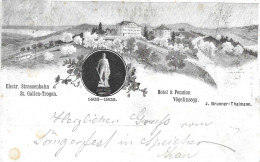 Electr. Strassenbahn
St. Gallen-Trogen.
1403-1903.
Hotel & Pension
Vögelinsegg.
J. Brunner-Thalmann.
Herzlichen Gruss vom
Sängerfest in Speicher